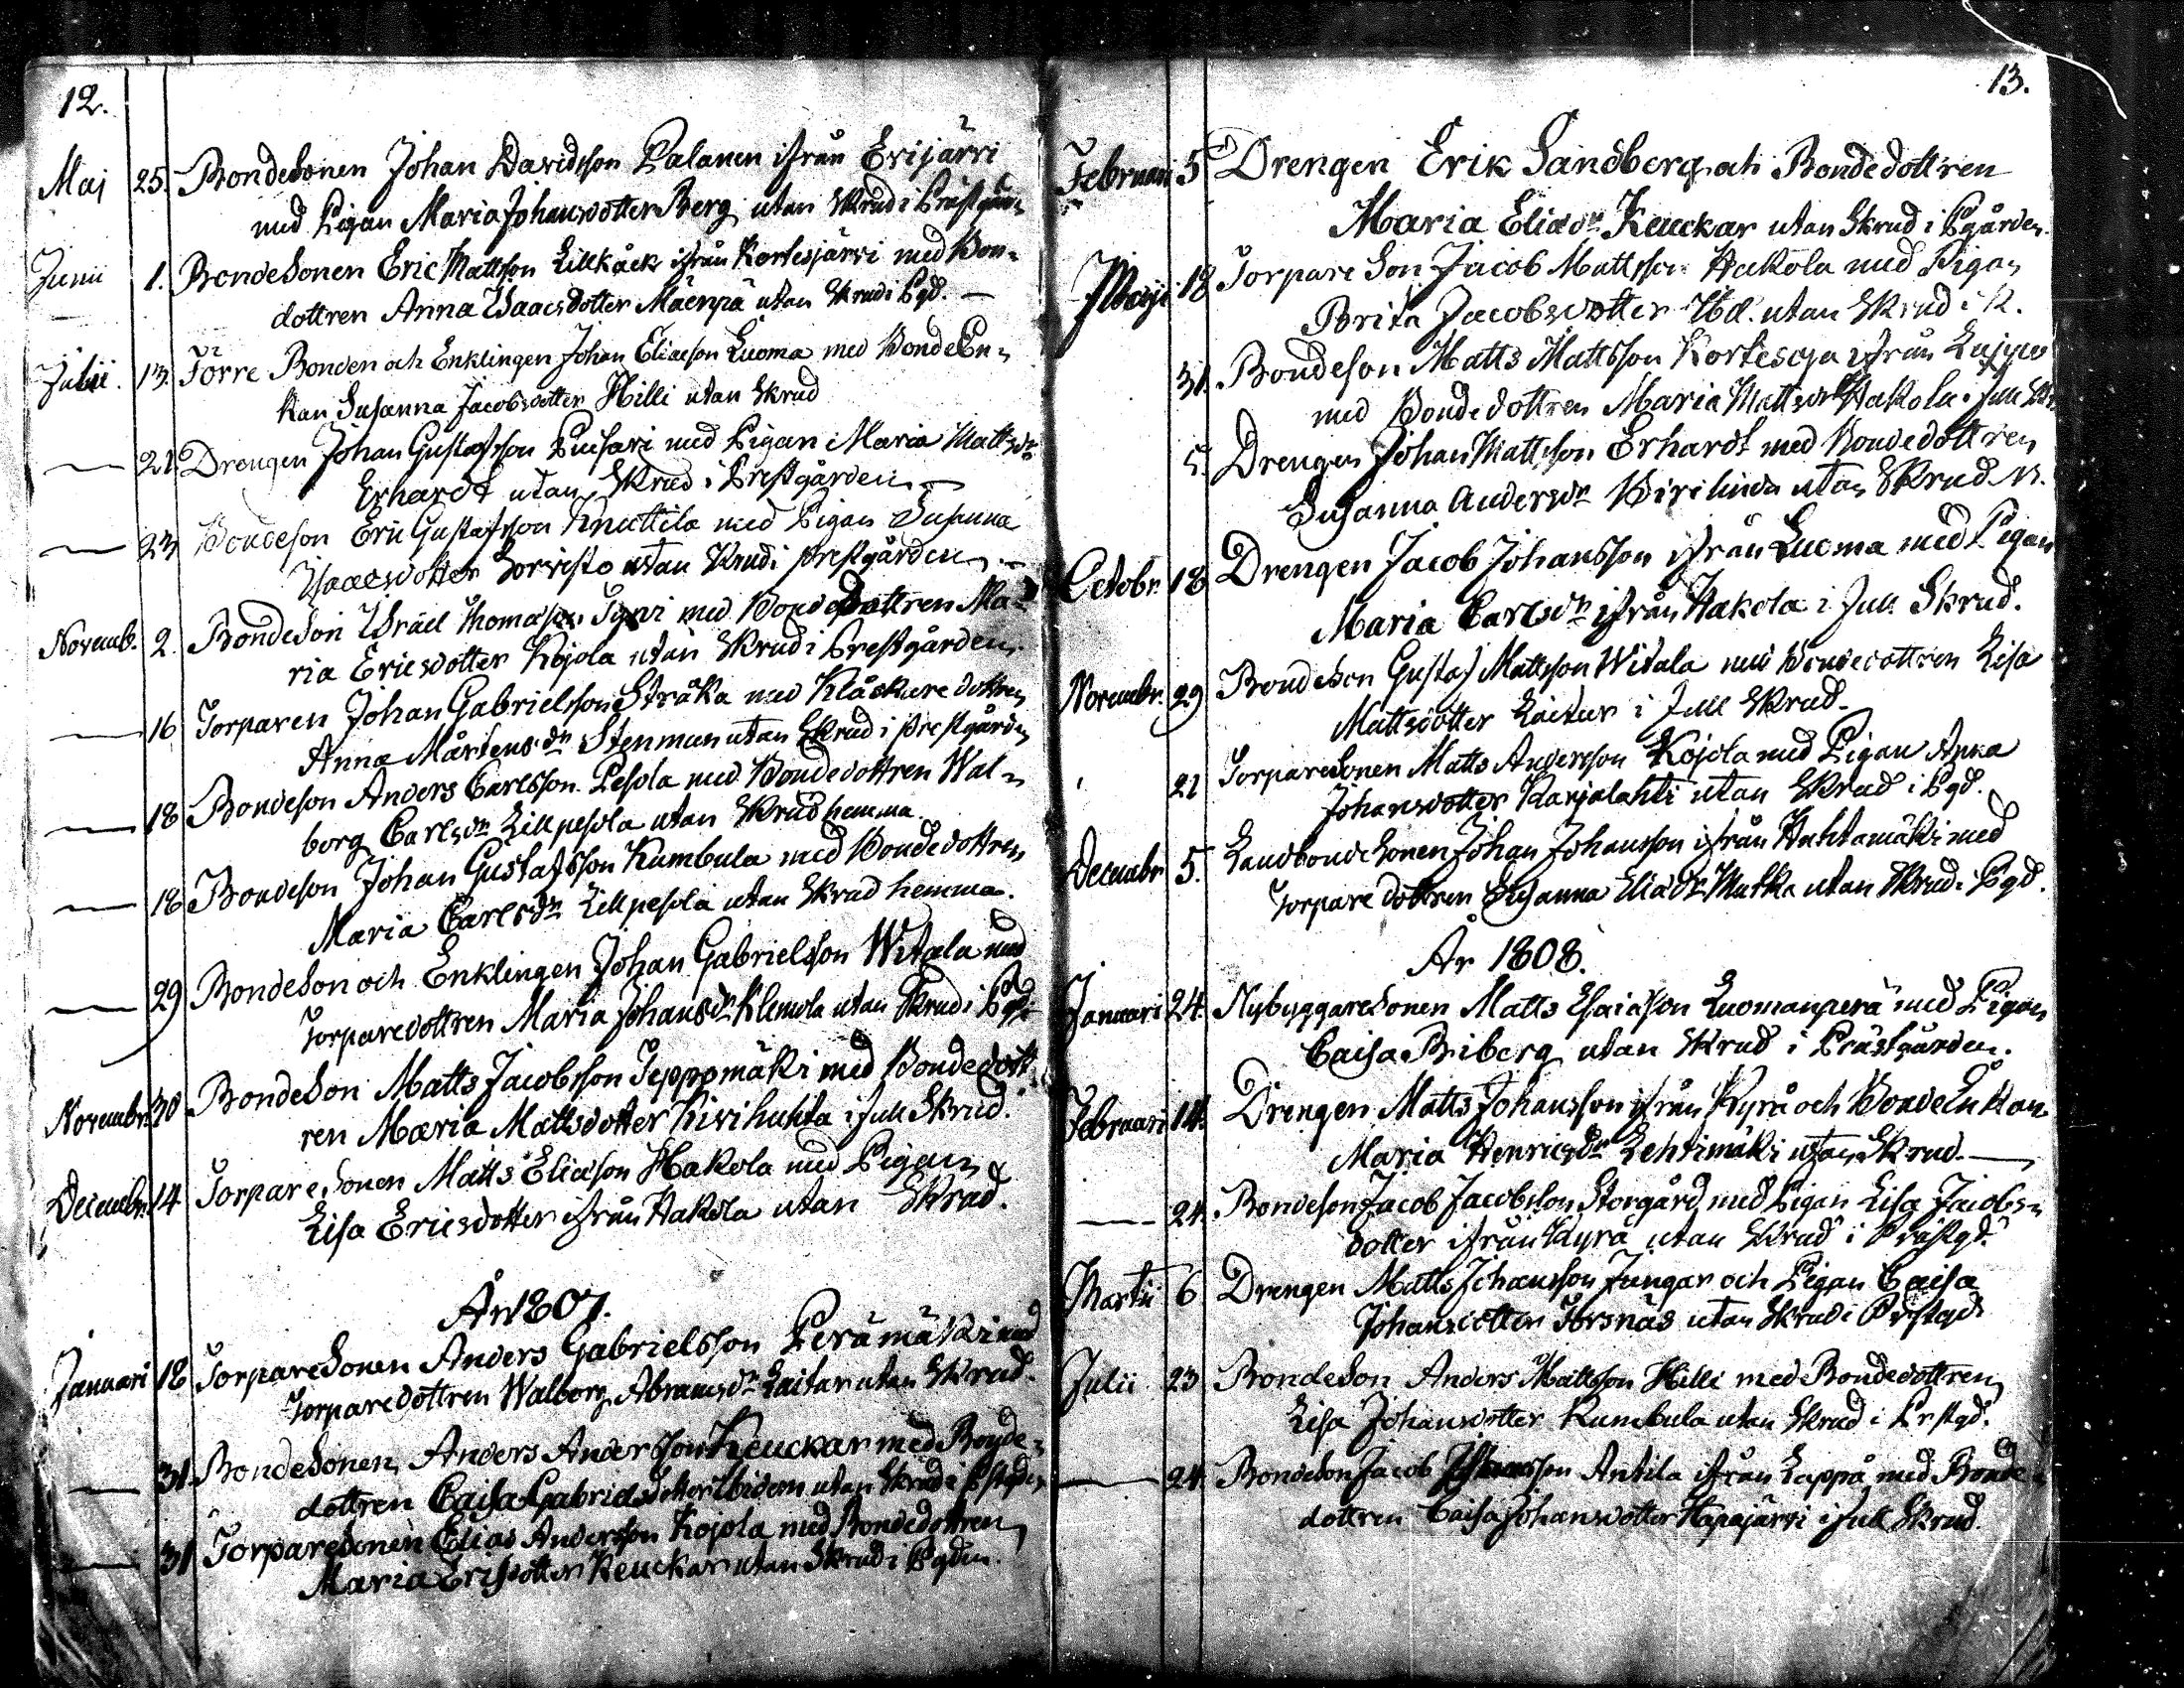 12.
Maj 25. Bondesonen Johan Davidsson Palanen ifrån Erijärvi
med Pigan Maria Johansdotter Berg utan Skrud i Prästgårn
Junii 1. Bondesonen Eric Mattsson Lillkåck ifrån Kortesjärvi med Bon-
dottren Anna Isaacsdotter Mäenpä utan Skrud i Pgd. —
Julii. 13. Förre Bonden och Enklingen Johan Eliasson Luoma med Bonde En-
kan Susanna Jacobsdotter Hilli utan Skrud
— 21. Drengen Johan Gustafsson Pensari med Pigan Maria Mattsdr
Erhardt utan Skrud i Prestgården —
— 23 Bondeson Eric Gustafsson Knuttila med Pigan Susanna
Isaacsdotter Sorvisto utan Skrud i prestgården —
Novemb. 2. Bondeson Israel Thomasson Tyni med Bondedottren Ma-
ria Ericsdotter Kojola utan Skrud i Prestgården.
— 16 Torparen Johan Gabrielsson Stråka med Klåckaredottren
Anna Mårtensdr Stenman utan Skrud i prestgården
— 18 Bondeson Anders Carlsson Pesola med Bondedottren Wal-
borg Carlsdr Lillpesola utan Skrud hemma.
— 18 Bondeson Johan Gustafsson Kumbula med Bondedottren
Maria Carlsdr Lillpesola utan Skrud hemma.
— 29 Bondeson och Enklingen Johan Gabrielsson Witala med
Torparedottren Maria Johansdr Klemola utan Skrud i Pgd
Novembr. 30 Bondeson Matts Jacobsson Teppomäki med Bondedott
ren Maria Mattsdotter Kivihuhta i full Skrud.
Decembr. 14 Torparesonen Matts Eliasson Hakola med Pigan
Lisa Ericsdotter ifrån Hakola utan Skrud.
År 1807.
Januari 18 Torparesonen Anders Gabrielsson Perämäki med
Torparedottren Walborg Abramsdr Laitar utan Skrud.
— 31. Bondesonen Anders Andersson Keuckar med Bonde-
dottren Caisa Gabrielsdotter Ibidem utan Skrud i
— 31 Torparesonen Elias Andersson Kojola med Bondedottren
Maria Ericsdotter Keuckar utan Skrud i Pgden.
13.
Februari 5 Drengen Erik Sandberg och Bondedottren
Maria Eliasdr Keuckar utan Skrud i Pgården.
Maji 18 Torpare Son Jacob Mattsson Hakola med Pigan
Brita Jacobsdotter Ibd. utan Skrud i K.
31. Bondeson Matts Mattsson Kortesoja ifrån Lappo
med Bondedottren Maria Mattsdr Hakola i full Skr
5. Drengen Johan Mattsson Erhardt med Bondedottren
Susanna Andersdr utan Skrud
Octobr. 18 Drengen Jacob Johansson ifrån Luoma med Pigan
Maria Carlsdr ifrån Hakola i full Skrud.
Novembr. 29 Bondeson Gustaf Mattsson Witala med Bondedottren Lisa
Mattsdotter Laitar i full Skrud.
21 Torparesonen Matts Andersson Kojola med Pigan Anna
Johansdotter Karjalahti utan Skrud i Pgd.
Decembr 5. Landbondesonen Johan Johansson ifrån Huhtamäki med
Torparedottren Susanna Eliasdr Matka utan Skrud i Pgd.
År 1808.
Januari 24. Nybyggaresonen Matts Esaiasson Luomanperä med Pigan
Caisa Briberg utan Skrud i Prästgården.
Februari 14. Drengen Matts Johansson ifrån Kyrå och Bonde Enkan
Maria Henricsdr Lehtimäki utan Skrud. —
— 24. Bondeson Jacob Jacobsson Storgård med Pigan Lisa Jacobs-
dotter ifrån Kyrå utan Skrud i Prästgd.
Martii 6 Drengen Matts Johansson Jungar och Pigan Caisa
Johansdotter Törsnäs utan Skrud i Prestgd
Julii 23 Bondeson Anders Mattsson Hilli med Bondedottren
Lisa Johansdotter Kumbula utan Skrud i Prstgd.
— 24. Bondeson Jacob Johansson Antila ifrån Lappå med Bonde-
dottren Caisa Johansdotter Hapajärvi i full Skrud.